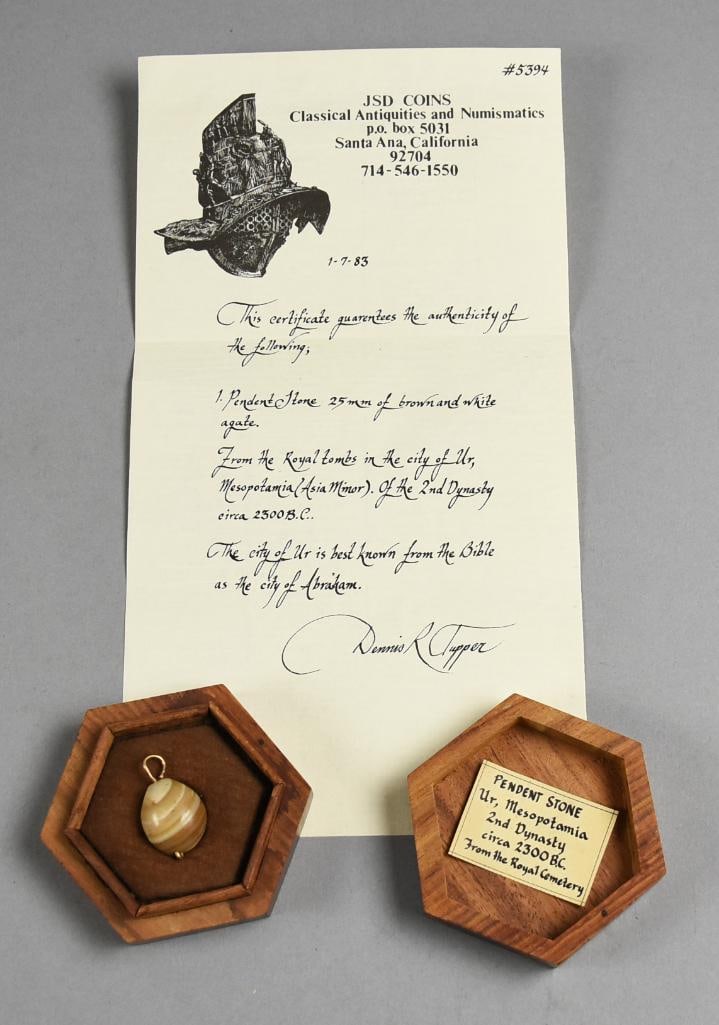 #5394
JSD COINS
Classical Antiquities and Numismatics
p.o. box 5031
Santa Ana, California
92704
714-546-1550
1-7-83
This certificate guarentees the authenticity of
the following;
1. Pendent Stone 25mm of brown and white
agate.
From the Royal tombs in the city of Ur,
Mesopotamia (Asia Minor). Of the 2nd Dynasty
circa 2300 B.C..
The city of Ur is best known from the Bible
as the city of Abraham.
Dennis R Tupper
PENDENT STONE
Ur, Mesopotamia
2nd Dynasty
circa 2300 B.C.
From the Royal Cemetery